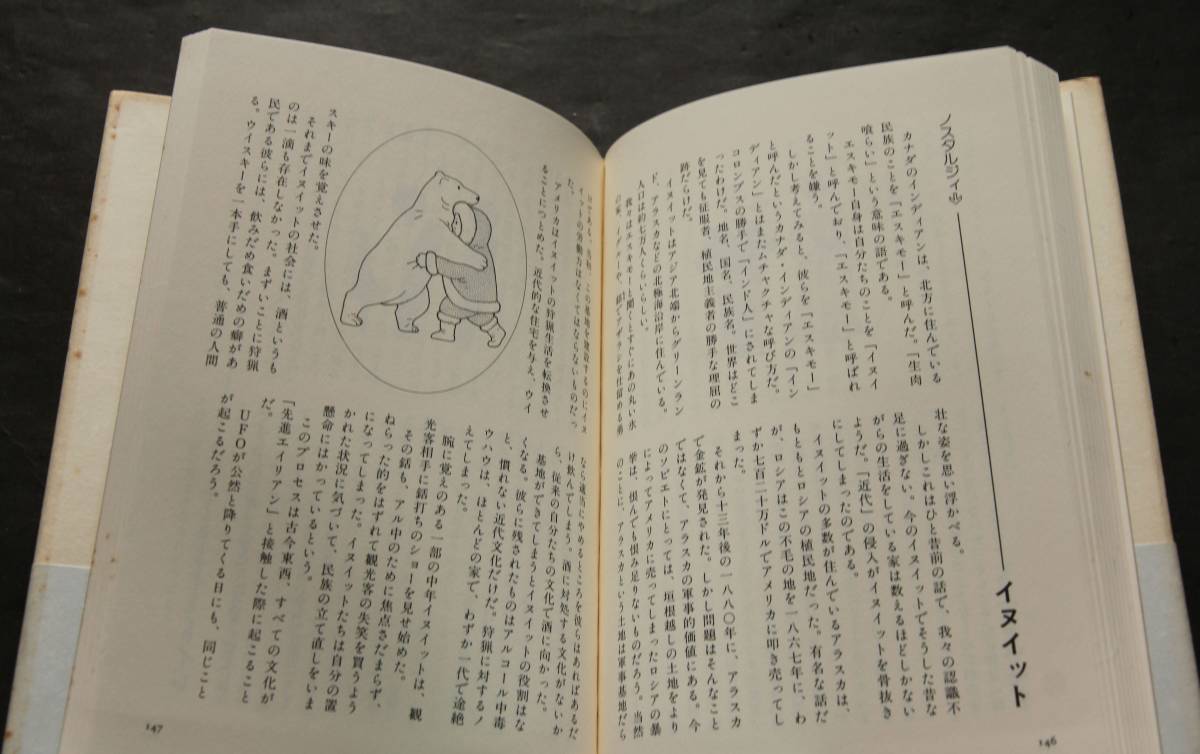 ノスタルジィル
イヌイット
カナダのインディアンは、北方に住んでいる
民族のことを「エスキモー」と呼んだ。「生肉
喰らい」という意味の語である。
エスキモー自身は自分たちのことを「イヌイ
ット」と呼んでおり、「エスキモー」と呼ばれ
ることを嫌う。
しかし考えてみると、彼らを「エスキモー」
と呼んだというカナダ・インディアンの「イン
ディアン」とはまたムチャクチャな呼び方だ。
コロンブスの勝手で「インド人」にされてしま
ったわけだ。地名、国名、民族名。世界はどこ
を見ても征服者、植民地主義者の勝手な理屈の
跡だらけだ。
イヌイットはアジア北端からグリーンラン
ド、アラスカなどの北極海沿岸に住んでいる。
人口は約七万人くらいらしい。
我々はエスキモーと聞くとすぐにあの丸い氷
の家、イグルーや、銛でアザラシを仕留める勇
壮な姿を思い浮かべる。
しかしこれはひと昔前の話で、我々の認識不
足に過ぎない。今のイヌイットでそうした昔な
がらの生活をしている家は数えるほどしかない
ようだ。「近代」の侵入がイヌイットを骨抜き
にしてしまったのである。
イヌイットの多数が住んでいるアラスカは、
もともとロシアの植民地だった。有名な話だ
が、ロシアはこの不毛の地を一八六七年に、わ
ずか七百二十万ドルでアメリカに叩き売ってし
まった。
それから十三年後の一八八〇年に、アラスカ
で金鉱が発見された。しかし問題はそんなこと
ではなくて、アラスカの軍事的価値にある。今
のソビエトにとっては、垣根越しの土地をより
によってアメリカに売ってしまったロシアの暴
挙は、恨んでも恨み足りないものだろう。当然
のことに、アラスカという土地は軍事基地だら
146
けである。当初、この基地を建設するのにイヌ
イットの労働力はなくてはならないものだっ
た。
アメリカはイヌイットの狩猟生活を転換させ
ることにつとめた。近代的な住宅を与え、ウイ
スキーの味を覚えさせた。
それまでイヌイットの社会には、酒というも
のは一滴も存在しなかった。まずいことに狩猟
民である彼らには、飲みだめ食いだめの癖があ
る。ウイスキーを一本手にしても、普通の人間
なら適当にやめるところを彼らはあればあるだ
け飲んでしまう。酒に対処する文化がないか
ら、従来の自分たちの文化で酒に向かった。
基地ができてしまうとイヌイットの役割はな
くなる。彼らに残されたものはアルコール中毒
と、慣れない近代文化だけだ。狩猟に対するノ
ウハウは、ほとんどの家で、わずか一代で途絶
えてしまった。
腕に覚えのある一部の中年イヌイットは、観
光客相手に銛打ちのショーを見せ始めた。
その銛も、アル中のために焦点さだまらず、
ねらった的をはずれて観光客の失笑を買うよう
になってしまった。イヌイットたちは自分の置
かれた状況に気づいて、民族の立て直しをいま
懸命にはかっているという。
このプロセスは古今東西、すべての文化が
「先進エイリアン」と接触した際に起こること
だ。
UFOが公然と降りてくる日にも、同じこと
が起こるだろう。
147